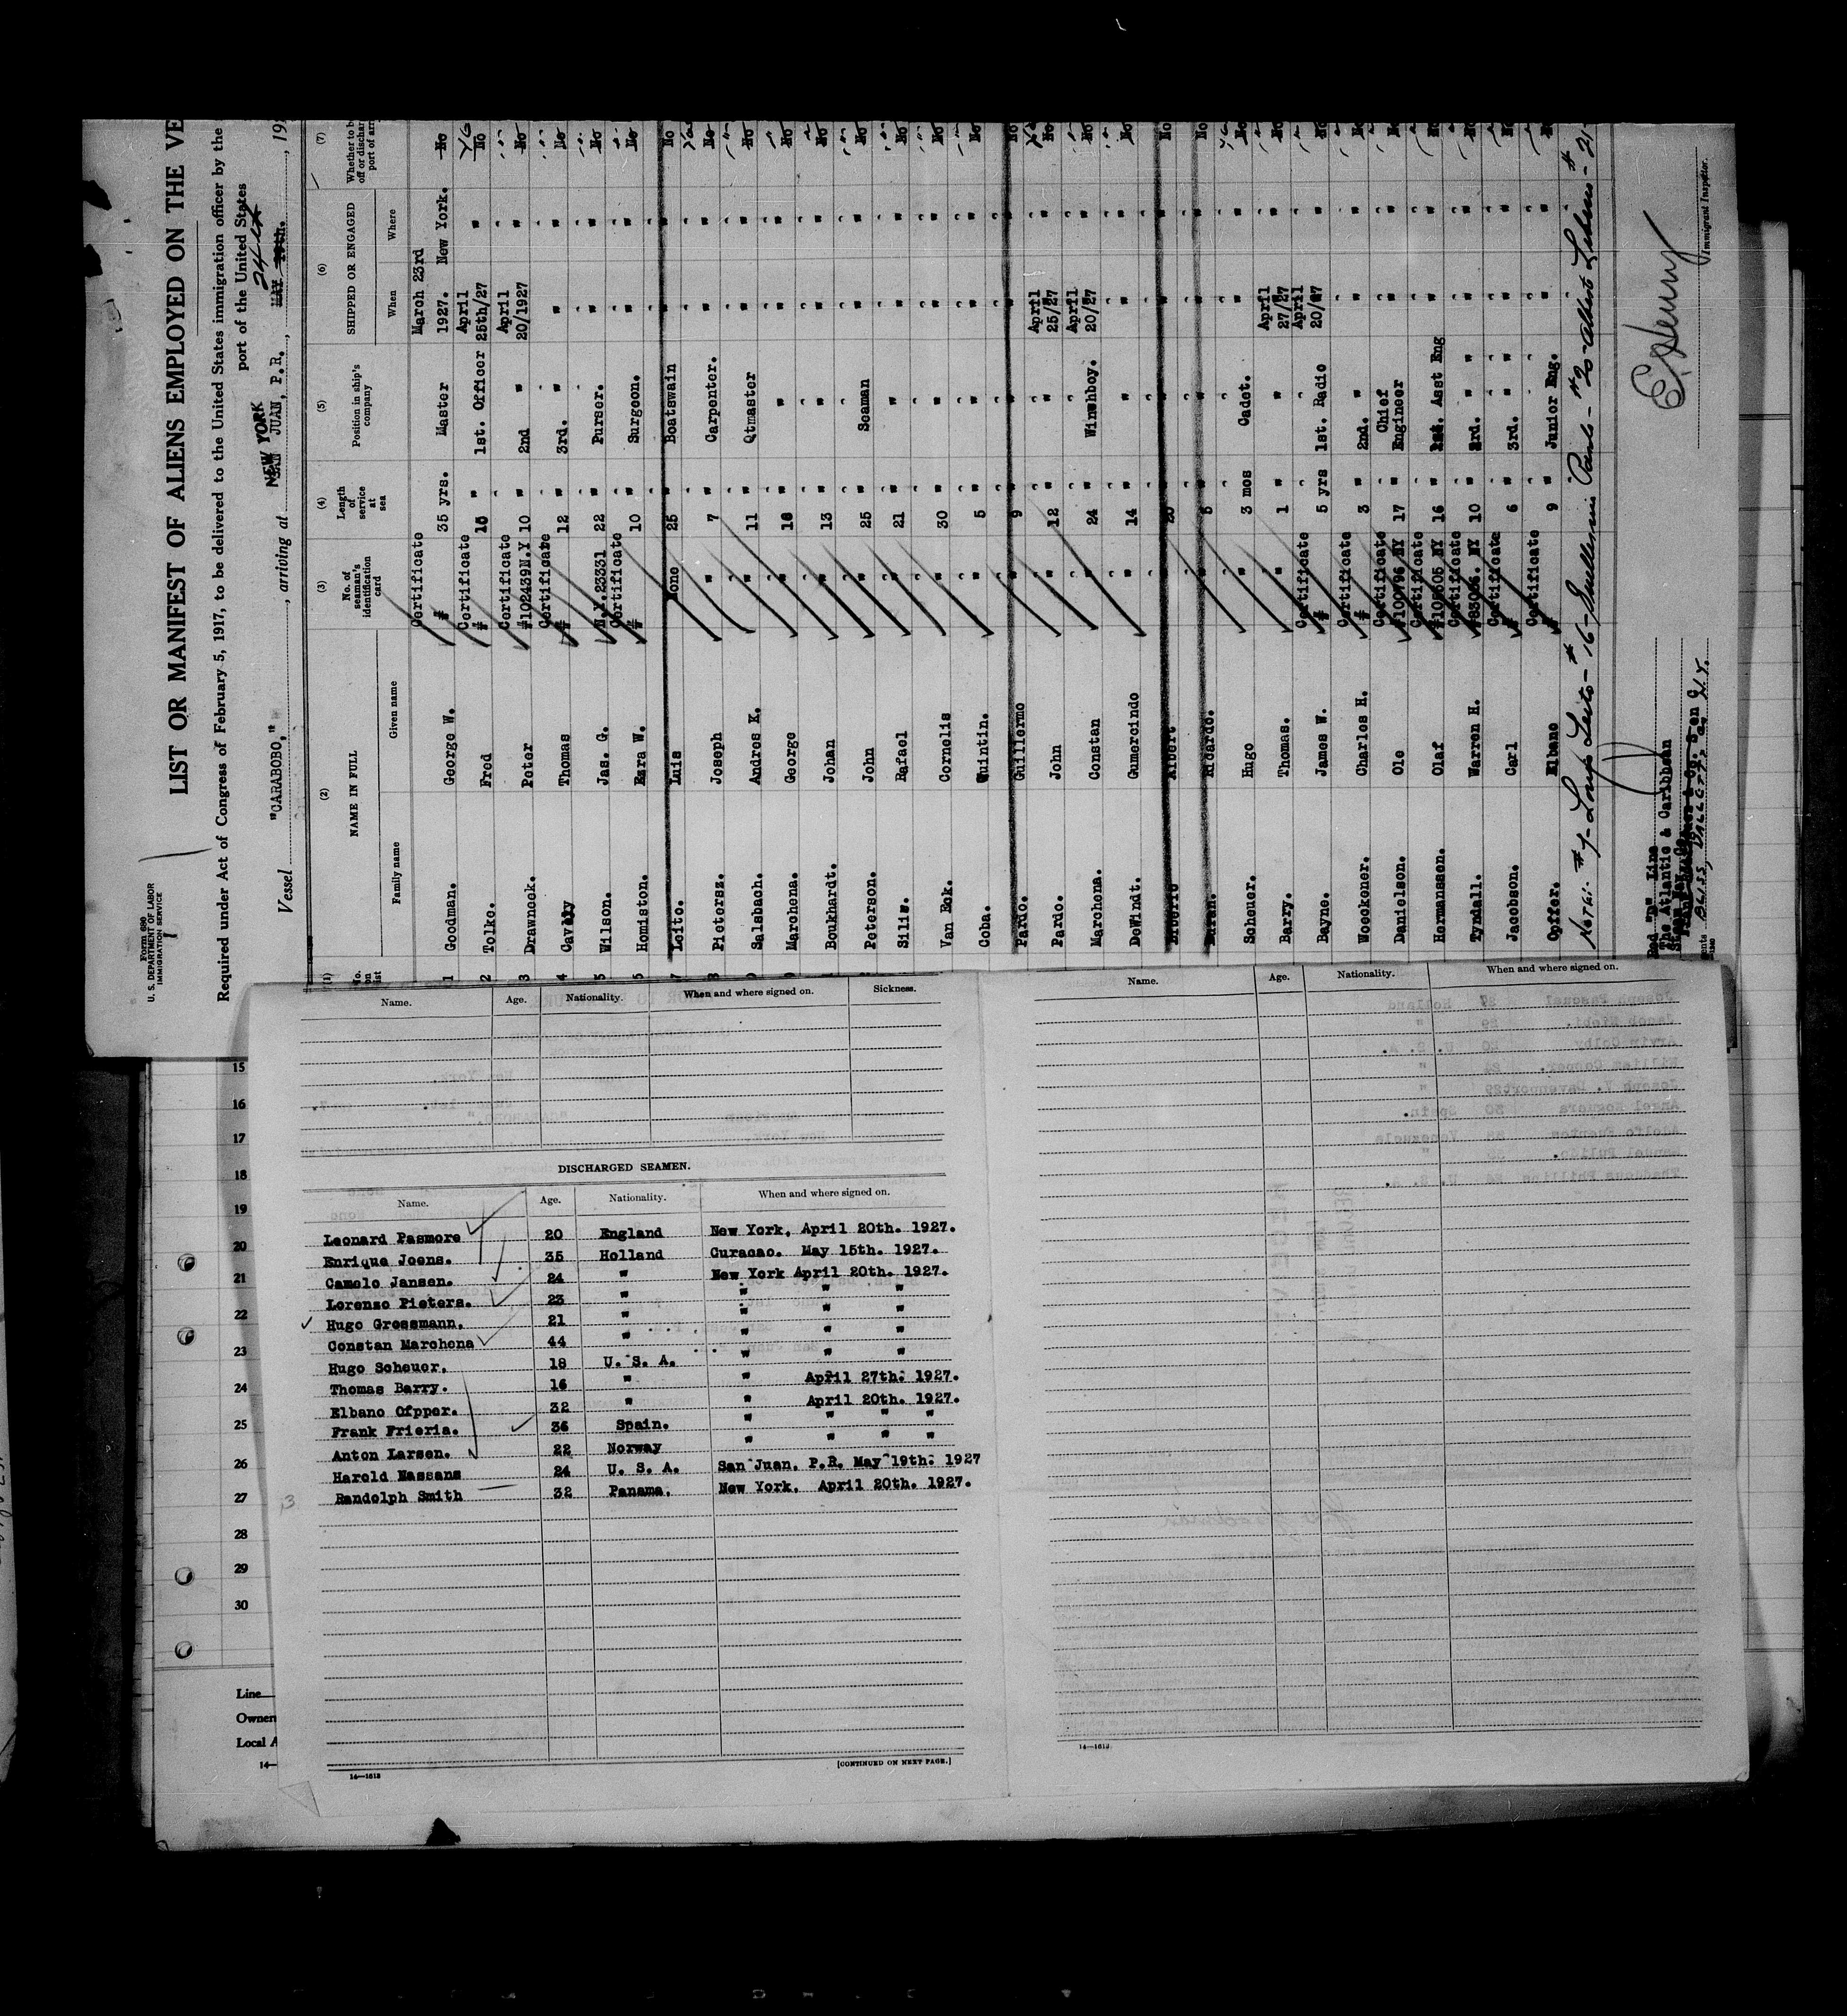 Form 690
U. S. DEPARTMENT OF LABOR
IMMIGRATION SERVICE
LIST OR MANIFEST OF ALIENS EMPLOYED ON THE VE
Required under Act of Congress of February 5, 1917, to be delivered to the United States immigration officer by the
port of the United States
Vessel "CARABOBO," , arriving at NEW YORK SAN JUAN, P.R. , MAY 19th. 24th , 19
(1) (2) (3) (4) (5) (6) (7)
No. on list NAME IN FULL No. of seaman's identification card Length of service at sea Position in ship's company SHIPPED OR ENGAGED Whether to b off or dischar port of arr
Family name Given name When Where
1 Goodman. George W. Certificate # 35 yrs. Master March 23rd 1927. New York. No
2 Tolke. Fred Certificate # 15 " 1st. Officer April 25th/27 " No
3 Drawneck. Peter Certificate #102439N.Y 10 " 2nd " April 20/1927 " No
4 Cavelly Thomas Certificate # 12 " 3rd. " " " No
5 Wilson. Jas. G. N.Y.23331 22 " Purser. " " No
Homiston. Ezra W. Certificate # 10 " Surgeon. " " No
7 Leito. Luis None 25 " Boatswain " " No
Pietersz. Joseph " 7 " Carpenter. " " No
Salsbach. Andres K. " 11 " Qtmaster " " No
Marchena. George " 18 " " " " No
Boukhardt. Johan " 13 " " " " No
Peterson. John " 25 " Seaman " " No
Silis. Rafael " 21 " " " " No
Van Eck. Cornelis " 30 " " " " No
Coba. Quintin. " 5 " " " " No
Pardo. Guillermo " 9 " " " " No
Pardo. John " 12 " " April 25/27 " No
Marchena. Constan " 24 " Winchboy. April 20/27 " No
DeWindt. Gumercindo " 14 " " " " No
Liberto Albert " 20 " " " " No
Duran. Ricardo. " 5 " " " " No
Scheuer. Hugo " 3 mos Cadet. " " No
Barry. Thomas. " 1 " " April 27/27 " No
Bayne. James W. Certificate # 5 yrs 1st. Radio April 20/27 " No
Woeckener. Charles H. Certificate # 3 " 2nd. " " " No
Danielson. Ole Certificate #100796 NY 17 " Chief Engineer " " No
Hermanssen. Olaf Certificate #105605 NY 16 " 1st. Asst Eng " " No
Tyndall. Warren H. Certificate #83006. NY 10 " 2rd. " " " " No
Jacobson. Carl Certificate # 6 " 3rd. " " " " No
Opffer. Elbano Certificate # 9 " Junior Eng. " " No
Note: #7- Louis Leito- #16- Guillermo Pardo- #20- Albert Liberto- #21-
Red "D" Line
The Atlantic & Caribbean
Steam Nav. Co.
BLISS DALLETT & Co. N.Y.
E. Henry
Immigrant Inspector.
15
16
17
18
19
20
21
22
23
24
25
26
27
28
29
30
Line
Owner
Local A
14—
Name. Age. Nationality. When and where signed on. Sickness.
DISCHARGED SEAMEN.
Name. Age. Nationality. When and where signed on.
Leonard Pasmore 20 England New York, April 20th. 1927.
Enrique Joens. 35 Holland Curacao. May 15th. 1927.
Camelo Jansen. 24 " New York April 20th. 1927.
Lorenzo Pieters. 23 " " " "
Hugo Grossmann. 21 " " " "
Constan Marchena 44 " " " "
Hugo Scheuer. 18 U. S. A. " " "
Thomas Barry. 16 " " April 27th. 1927.
Elbano Ofpper. 32 " " April 20th. 1927.
Frank Frieria. 36 Spain. " " " "
Anton Larsen. 22 Norway " " " "
Harold Massans 24 U. S. A. San Juan. P.R. May 19th. 1927
Randolph Smith 32 Panama. New York. April 20th. 1927.
[CONTINUED ON NEXT PAGE.]
14—1612
Name. Age. Nationality. When and where signed on.
14—1612